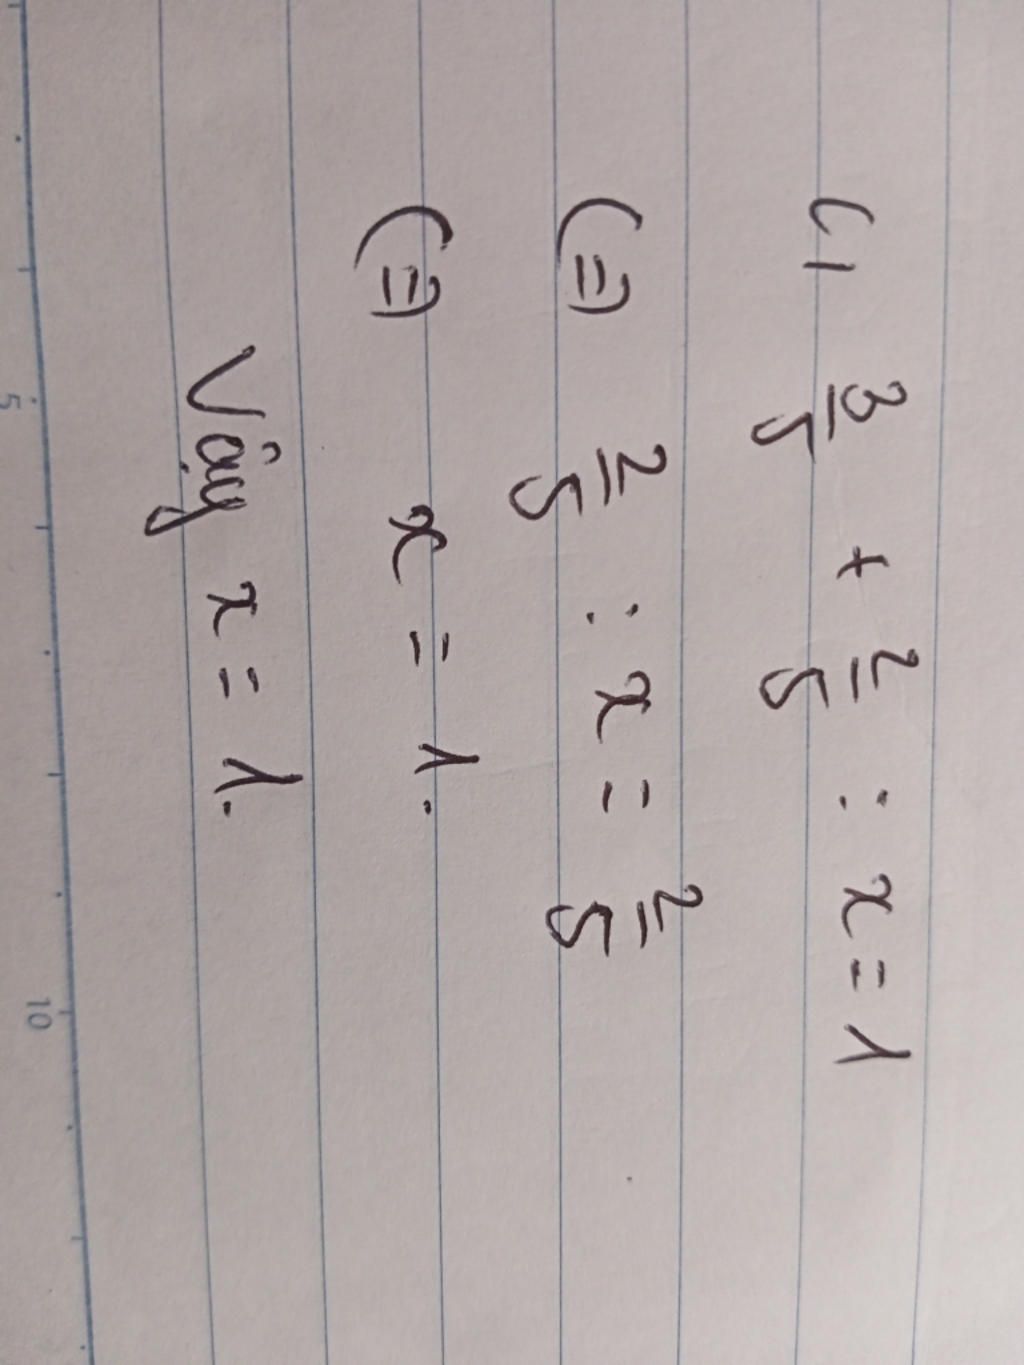 c, 3/5 + 2/5 : x = 1
(=) 2/5 : x = 2/5
(=) x = 1.
Vậy x = 1.
5
10